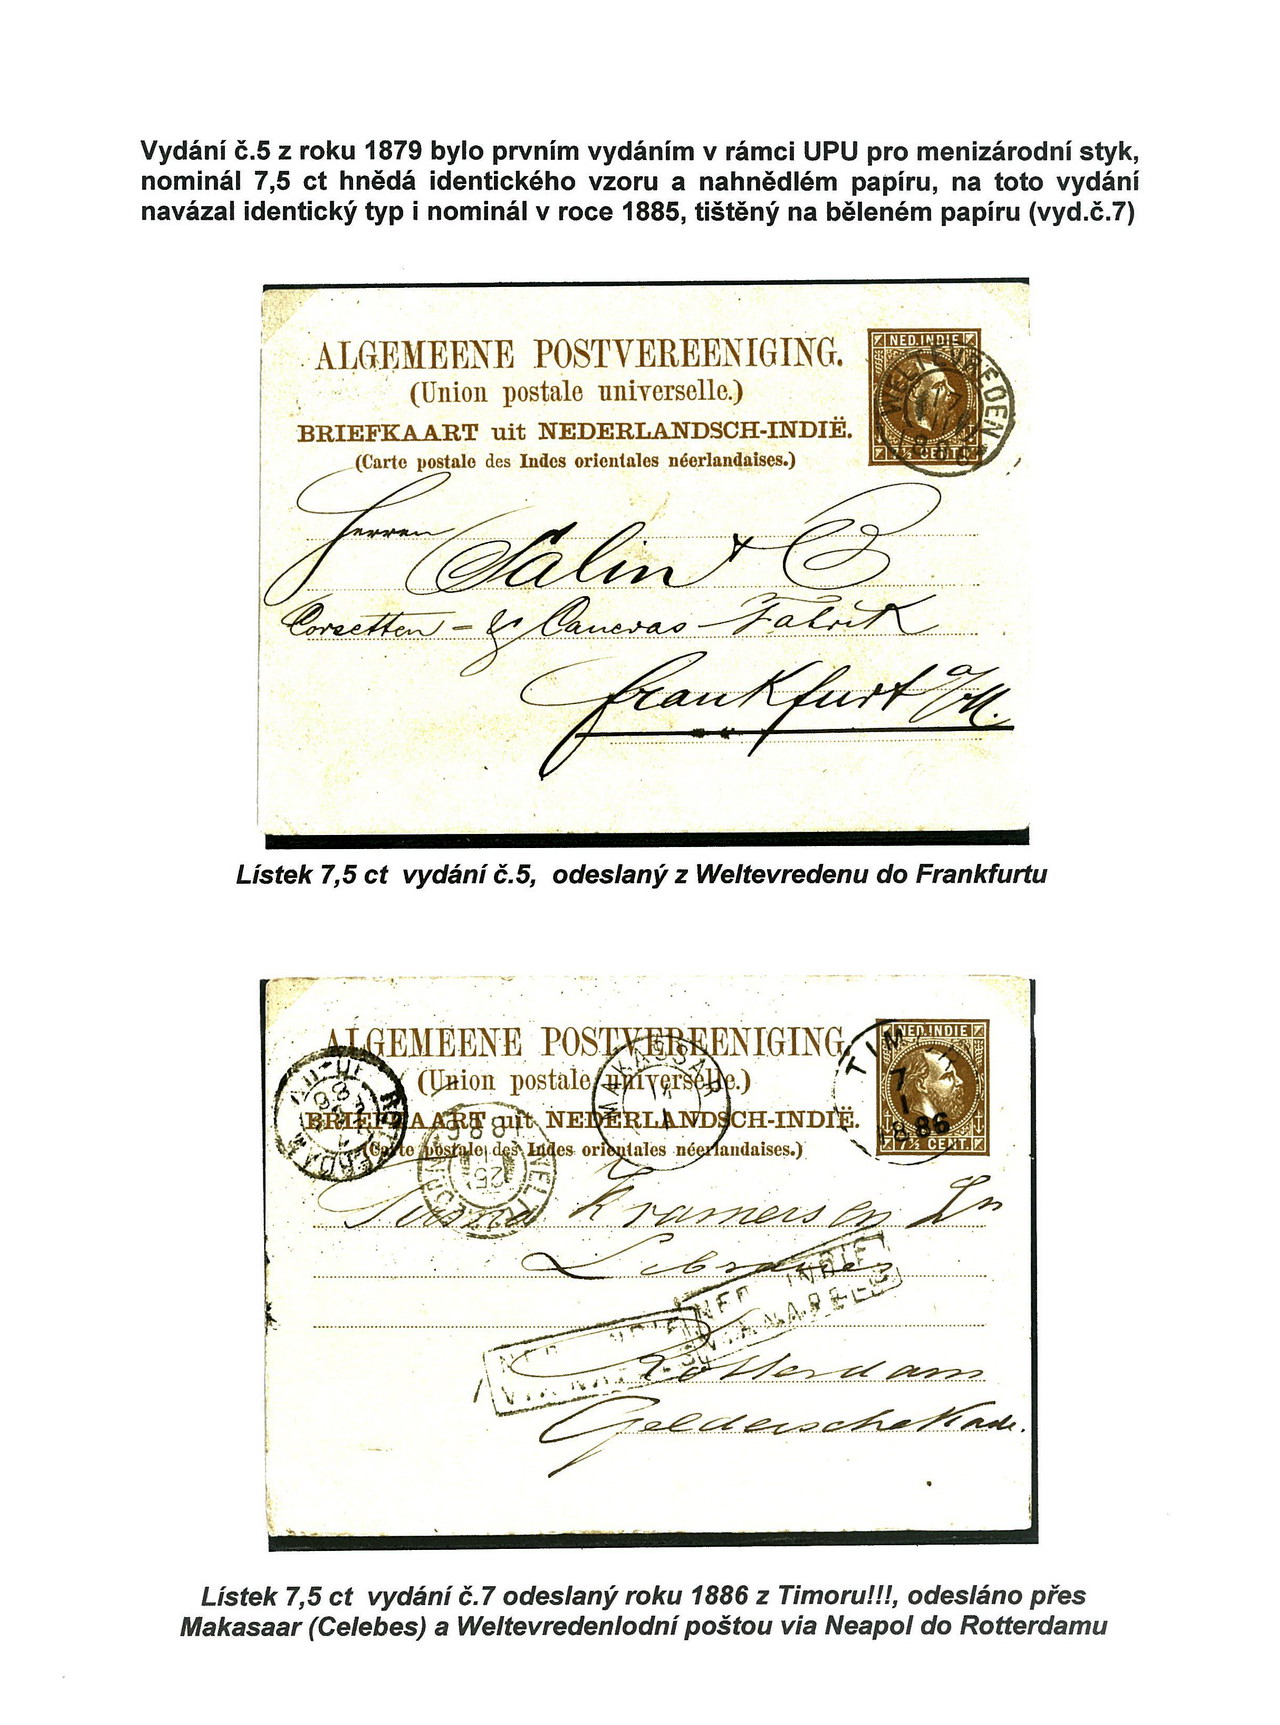 Vydání č.5 z roku 1879 bylo prvním vydáním v rámci UPU pro menizárodní styk,
nominál 7,5 ct hnědá identického vzoru a nahnědlém papíru, na toto vydání
navázal identický typ i nominál v roce 1885, tištěný na běleném papíru (vyd.č.7)
ALGEMEENE POSTVEREENIGING.
(Union postale universelle.)
BRIEFKAART uit NEDERLANDSCH-INDIË.
(Carte postale des Indes orientales néerlandaises.)
NED.INDIE
WELTEVREDEN
7½ CENT
Herren
Salin & C
Corsetten - & Canevas - Fabrik
Frankfurt a/M.
Lístek 7,5 ct vydání č.5, odeslaný z Weltevredenu do Frankfurtu
ALGEMEENE POSTVEREENIGING.
(Union postale universelle.)
BRIEFKAART uit NEDERLANDSCH-INDIË.
(Carte postale des Indes orientales néerlandaises.)
NED.INDIE
TIMOR
7
1
1886
7½ CENT.
MAKASSAR
ROTTERDAM
Kramers en Zn
Libraires
NED. INDIE
VIA NAPELS
NED. INDIE
VIA NAPELS
Rotterdam
Geldersche Kade.
Lístek 7,5 ct vydání č.7 odeslaný roku 1886 z Timoru!!!, odesláno přes
Makasaar (Celebes) a Weltevredenlodní poštou via Neapol do Rotterdamu